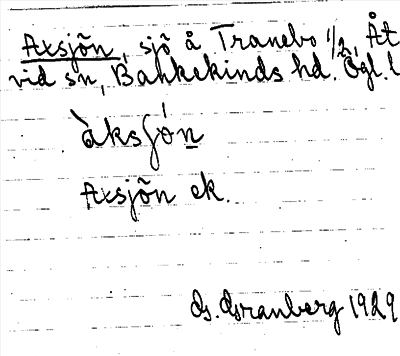 Axsjön, sjö å Tranebo 1/2, Åt
vid sn, Bankekinds hd. Ögl. l
àksʃón
Axsjön ek.
Granberg 1929